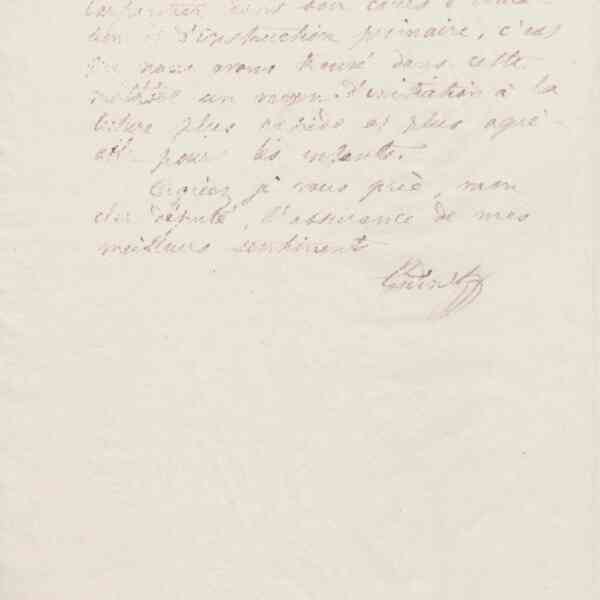 dans son cours d'
et d'instruction primaire, c'est
que nous avons trouvé dans cette
méthode un moyen d'initiation à la
plus rapide et plus agré-
able pour les enfants.
Agréez, je vous prie, mon
cher député, l'assurance de mes
meilleurs sentiments